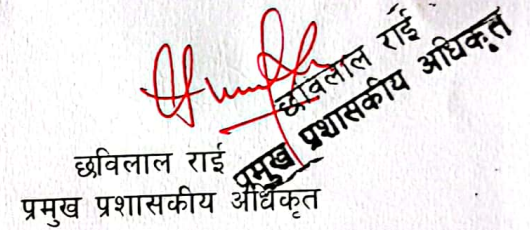 छविलाल राई
प्रमुख प्रशासकीय अधिकृत
छविलाल राई
प्रमुख प्रशासकीय अधिकृत